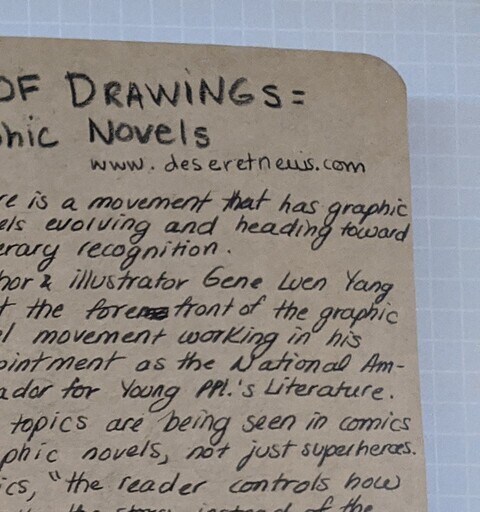 OF DRAWINGS=
hic Novels
www.deseretnews.com
re is a movement that has graphic
els evolving and heading toward
erary recognition.
hor & illustrator Gene Luen Yang
t the forefront of the graphic
l movement working in his
ointment as the National Am-
ador for Young PPl.'s Literature.
topics are being seen in comics
phic novels, not just superheroes.
ics, "the reader controls how
the story instead of the